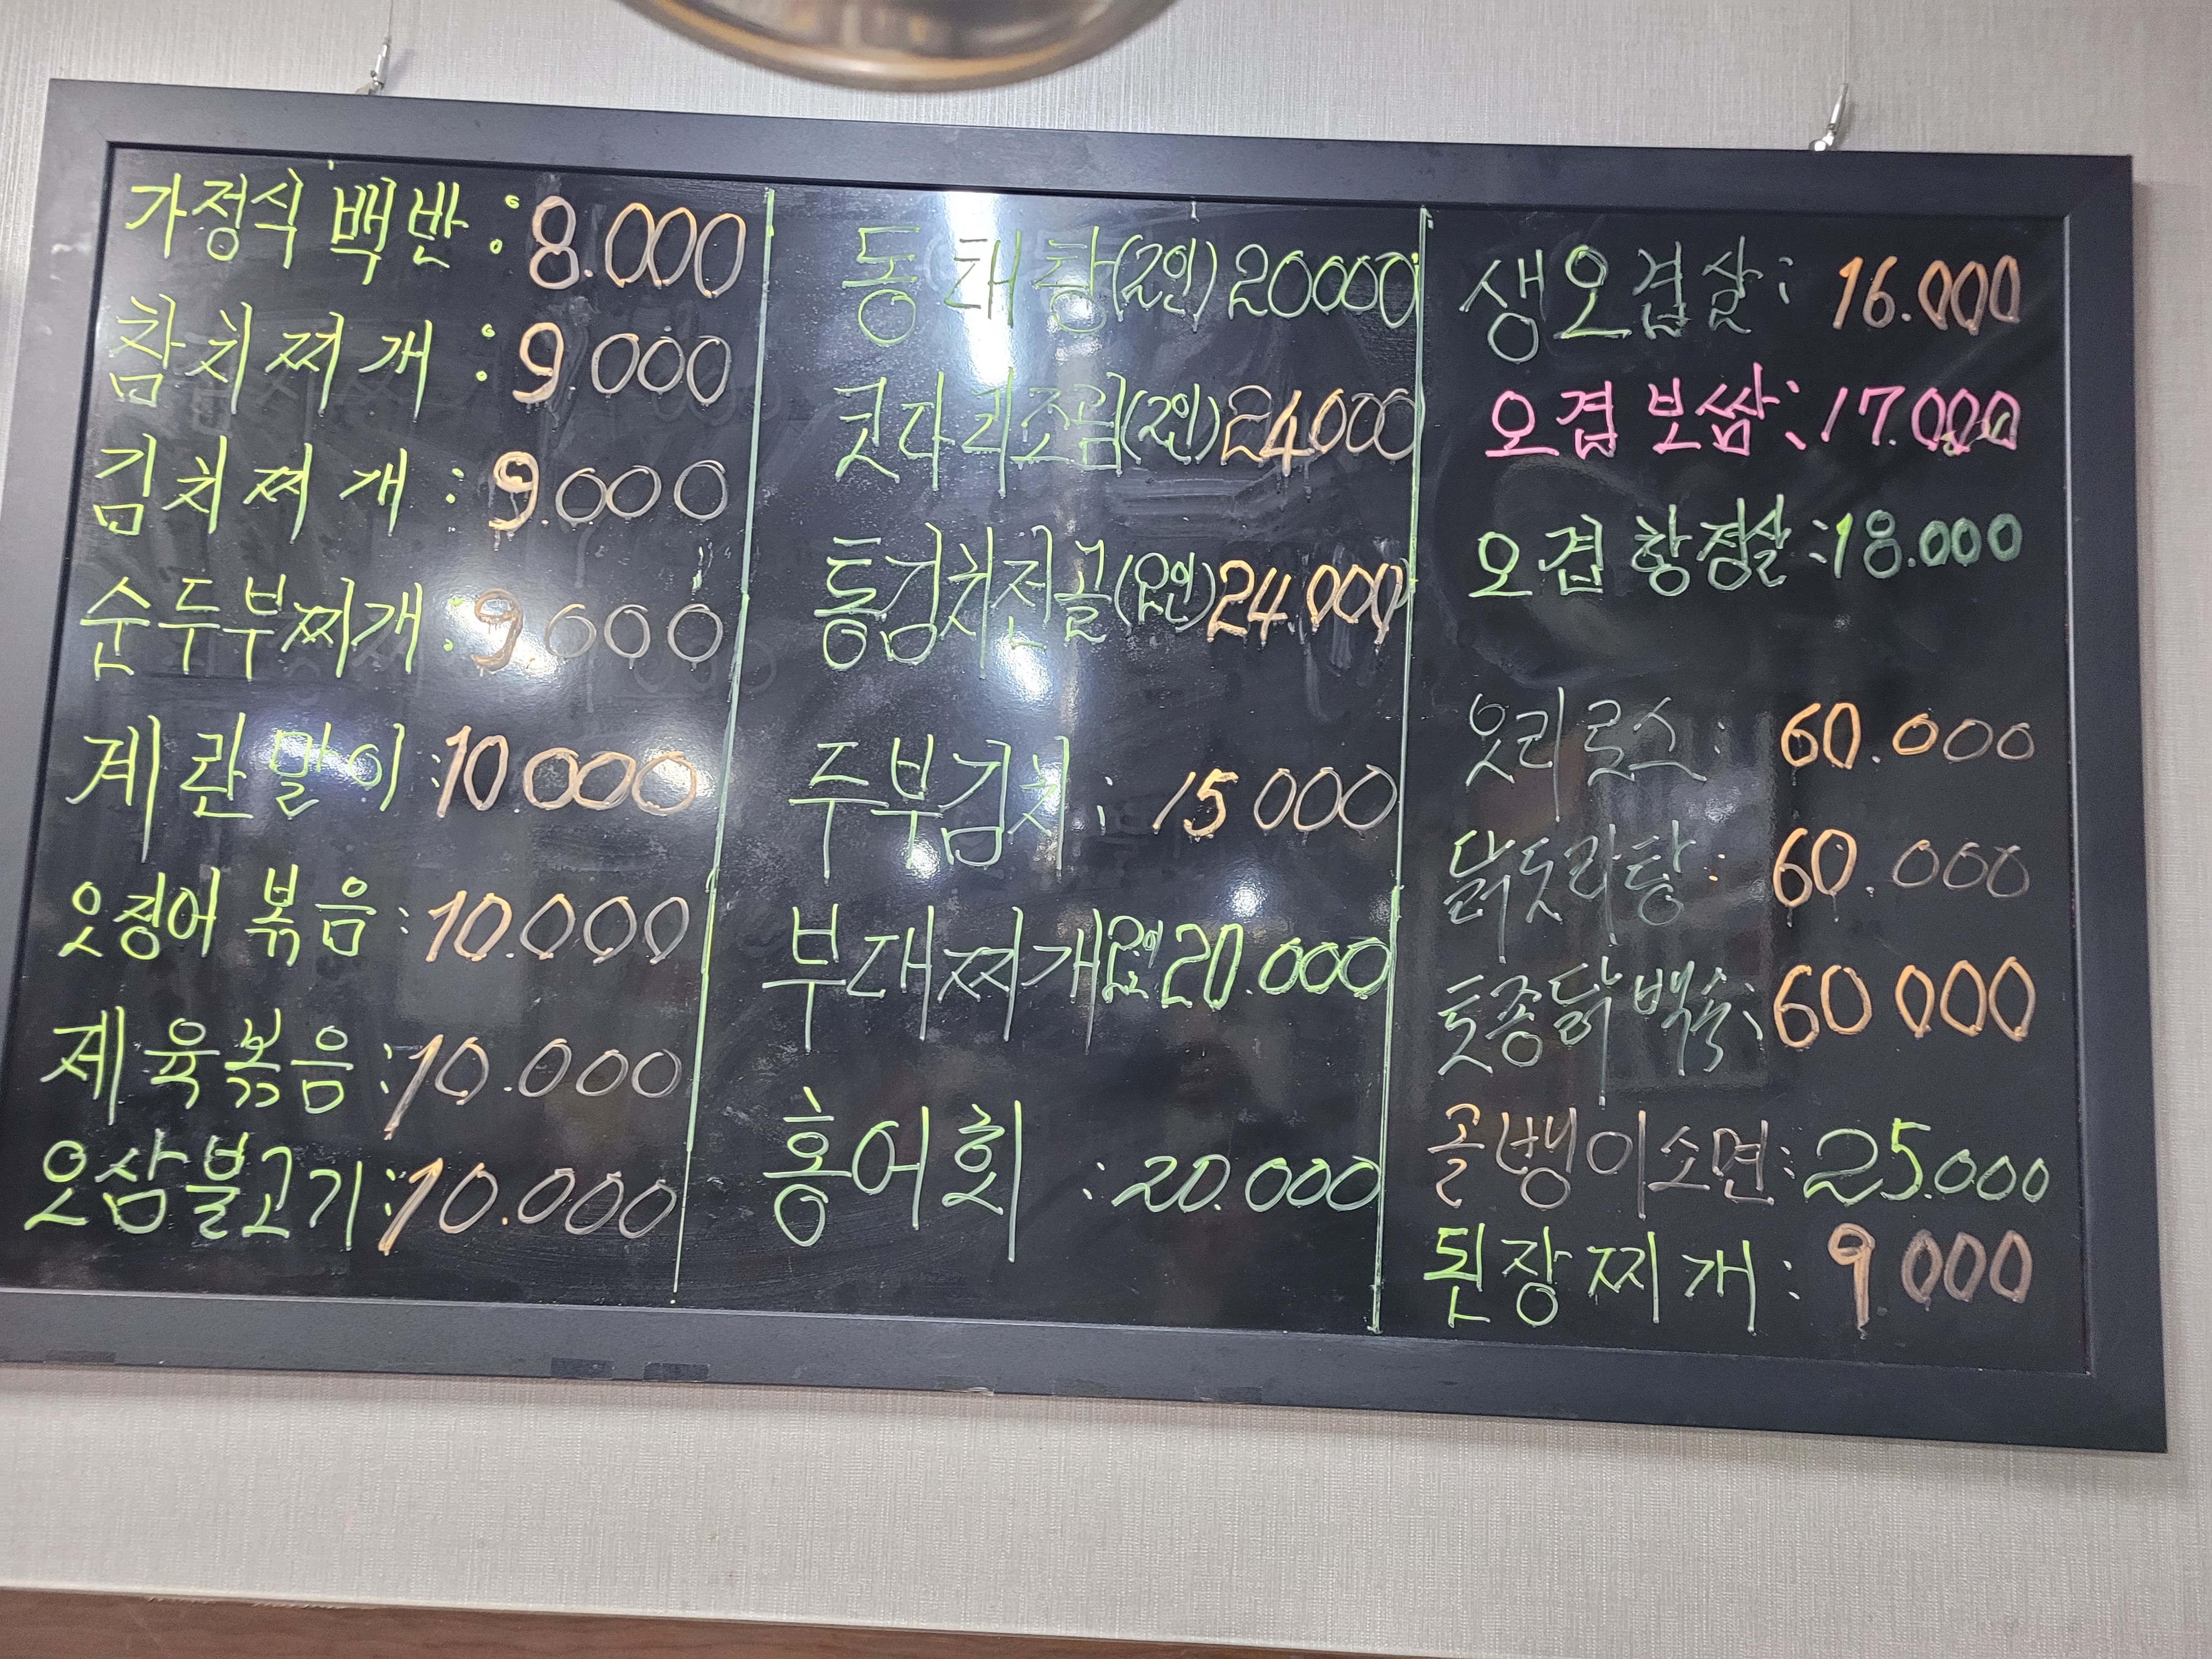 가정식 백반 : 8.000
참치찌개 : 9.000
김치찌개 : 9.000
순두부찌개 : 9.000
계란말이 : 10.000
오징어 볶음 : 10.000
제육볶음 : 10.000
오삼불고기 : 10.000
동태탕(2인) 20000
콧다리조림(2인) 24000
통김치전골(2인) 24.000
두부김치 : 15000
부대찌개 2인 20.000
홍어회 : 20.000
생오겹살 : 16.000
오겹 보쌈 : 17.000
오겹 항정살 : 18.000
옷리로스 : 60.000
닭도리탕 : 60.000
토종닭백숙 : 60000
골뱅이소면 : 25.000
된장찌개 : 9000